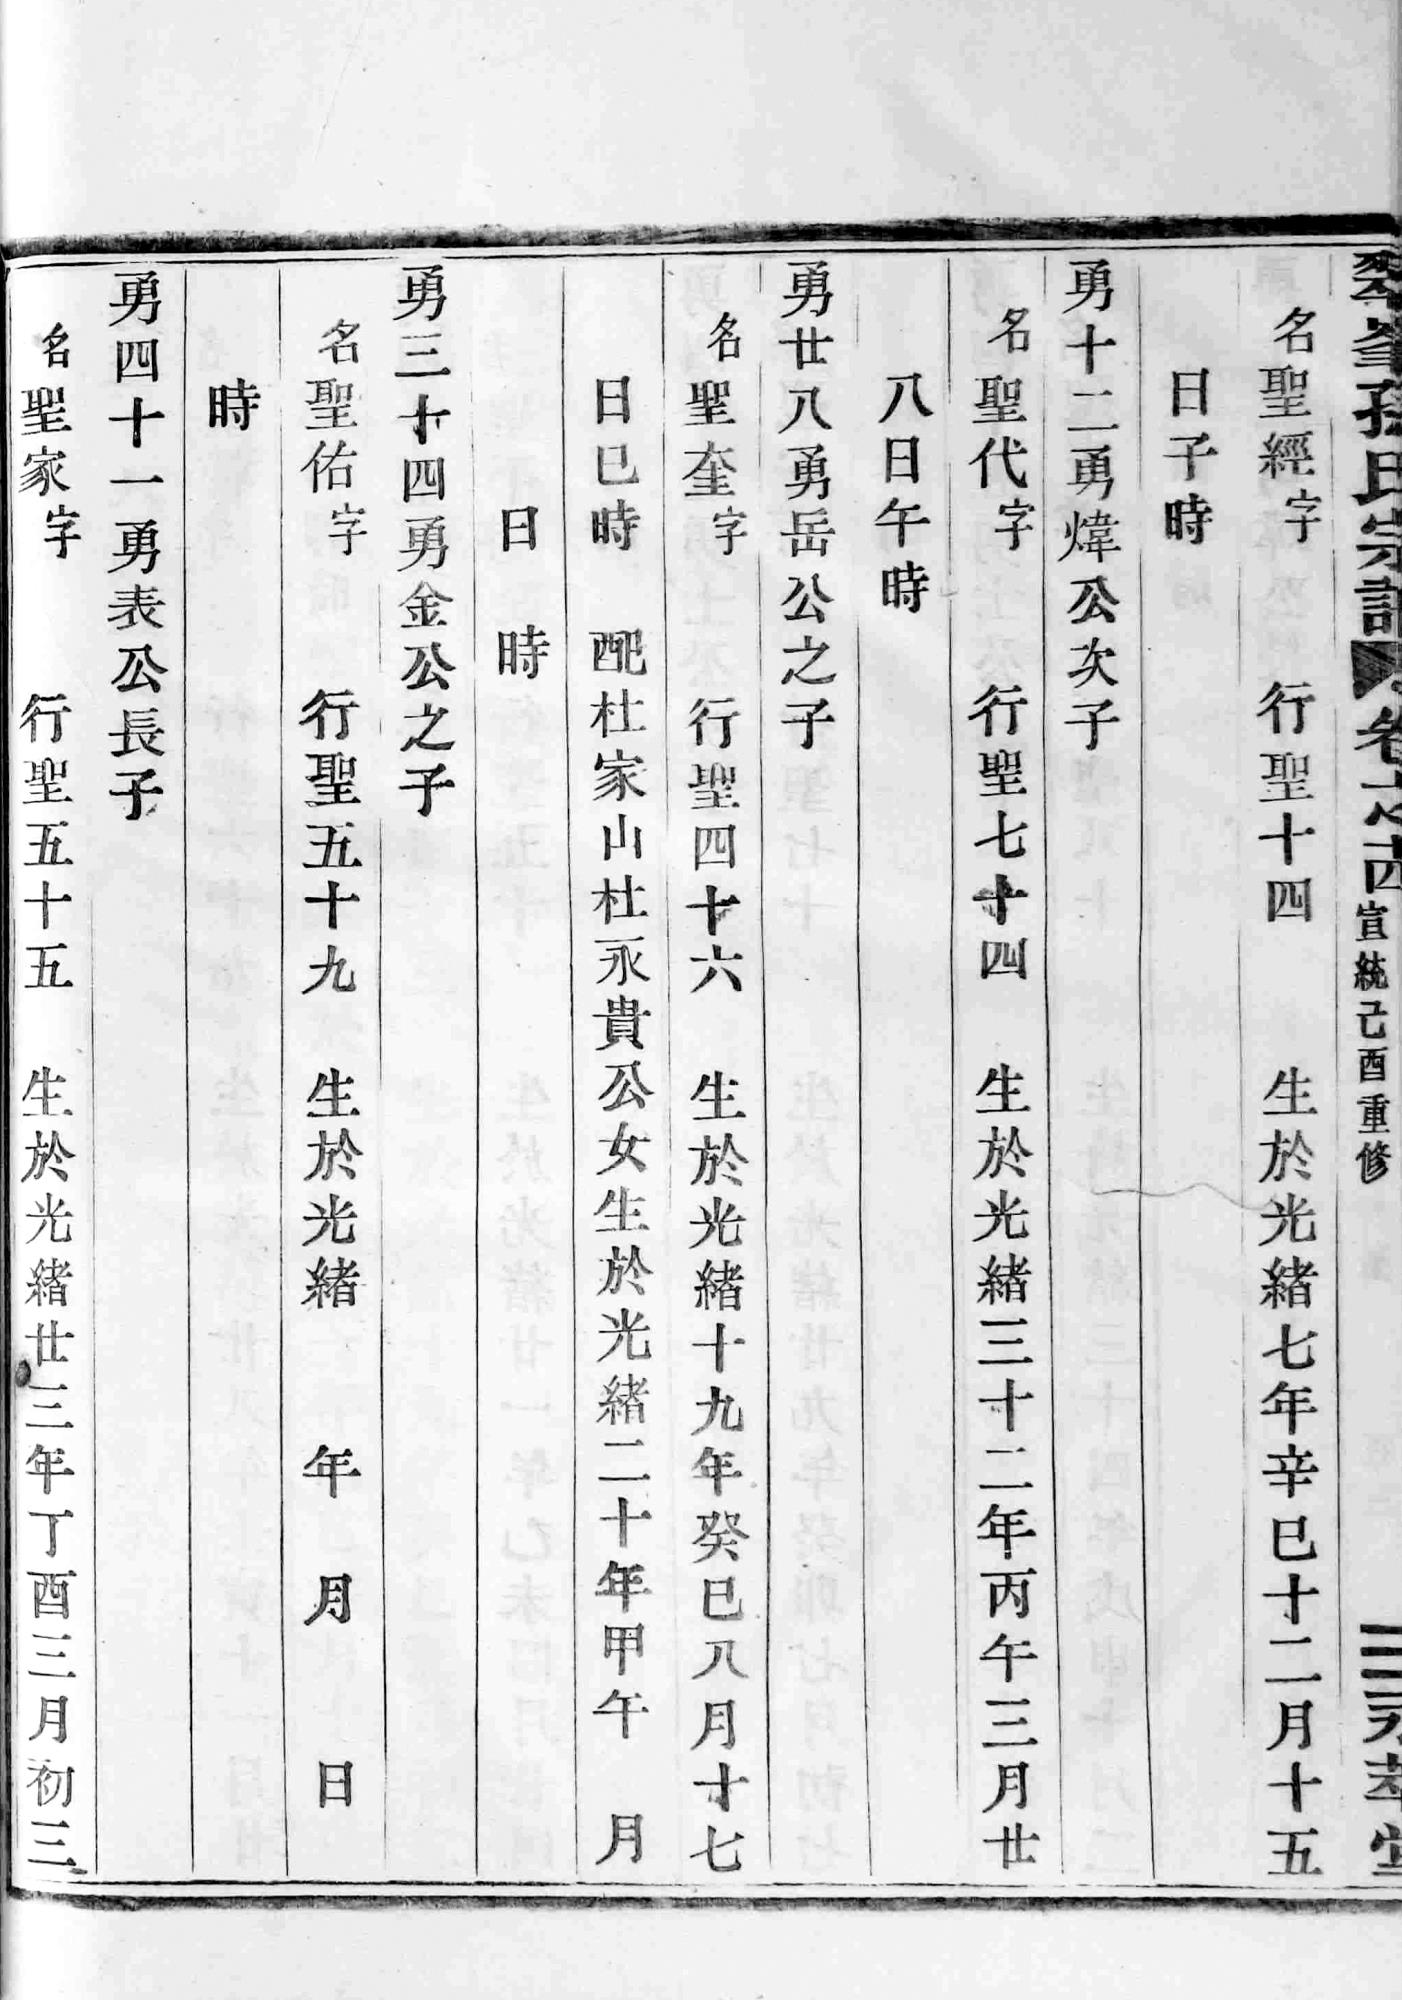 峯孫氏宗譜 卷之四 宣統己酉重修 三 永萃堂
名聖經字 行聖十四 生於光緒七年辛巳十二月十五
日子時
勇十二勇煒公次子
名聖代字 行聖七十四 生於光緒三十二年丙午三月廿
八日午時
勇廿八勇岳公之子
名聖奎字 行聖四十六 生於光緒十九年癸巳八月十七
日巳時 配杜家山杜永貴公女生於光緒二十年甲午 月
日 時
勇三十四勇金公之子
名聖佑字 行聖五十九 生於光緒 年 月 日
時
勇四十一勇表公長子
名聖家字 行聖五十五 生於光緒廿三年丁酉三月初三